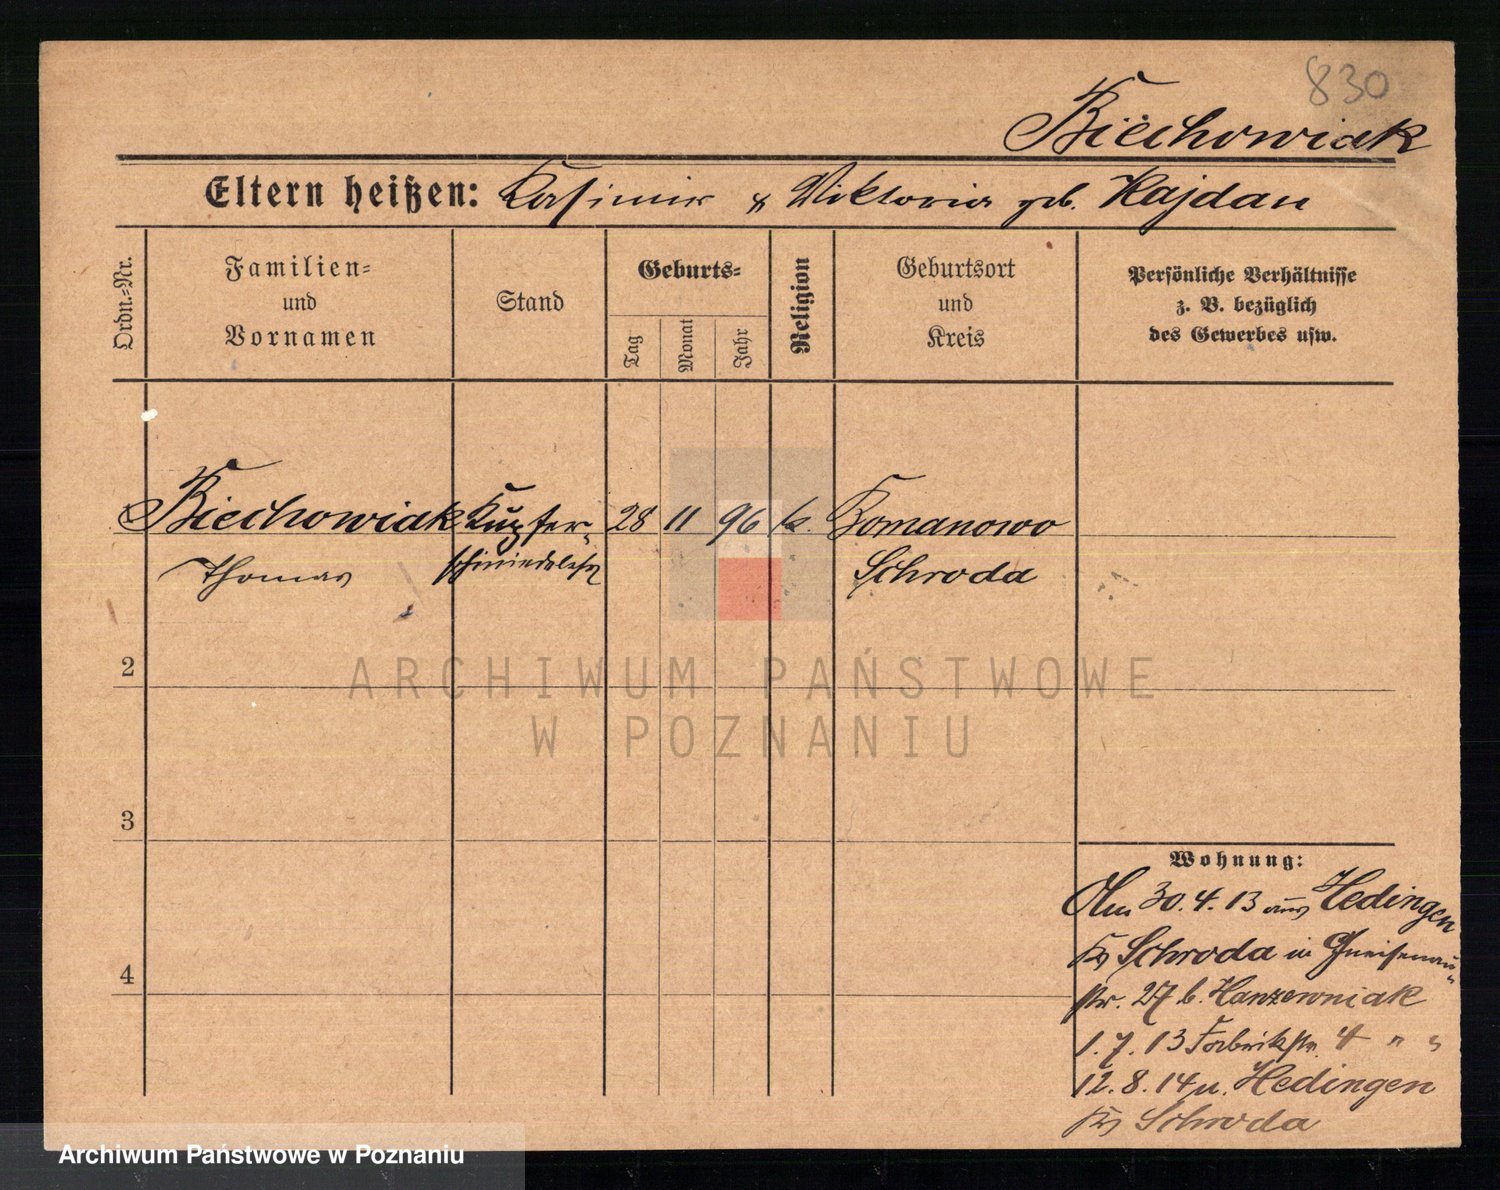 830
Biechowiak
Eltern heißen: Kasimir & Viktoria geb. Kajdan
Ordn.-Nr.
Familien-
und
Vornamen
Stand
Geburts-
Tag
Monat
Jahr
Religion
Geburtsort
und
Kreis
Persönliche Verhältnisse
z. B. bezüglich
des Gewerbes usw.
Biechowiak Kupfer- 28 11 96 k. Romanowo
Thomas schmiedelehrl Schroda
2
3
4
Wohnung:
Am 30.4.13 aus Hedingen
Kr Schroda in Gneisenau-
str. 27 b. Hanzewniak
1.7.13 Fabrikstr. 4 " "
12.8.14 n. Hedingen
Kr Schroda
ARCHIWUM PAŃSTWOWE
W POZNANIU
Archiwum Państwowe w Poznaniu